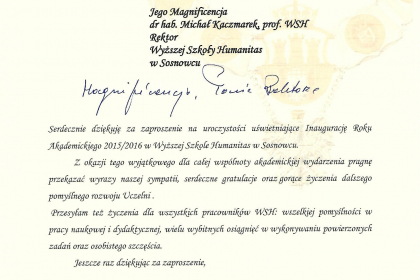 Jego Magnificencja
dr hab. Michał Kaczmarek, prof. WSH
Rektor
Wyższej Szkoły Humanitas
w Sosnowcu
Magnificencjo, Panie Rektorze
Serdecznie dziękuję za zaproszenie na uroczystości uświetniające Inaugurację Roku
Akademickiego 2015/2016 w Wyższej Szkole Humanitas w Sosnowcu.
Z okazji tego wyjątkowego dla całej wspólnoty akademickiej wydarzenia pragnę
przekazać wyrazy naszej sympatii, serdeczne gratulacje oraz gorące życzenia dalszego
pomyślnego rozwoju Uczelni .
Przesyłam też życzenia dla wszystkich pracowników WSH: wszelkiej pomyślności w
pracy naukowej i dydaktycznej, wielu wybitnych osiągnięć w wykonywaniu powierzonych
zadań oraz osobistego szczęścia.
Jeszcze raz dziękując za zaproszenie,